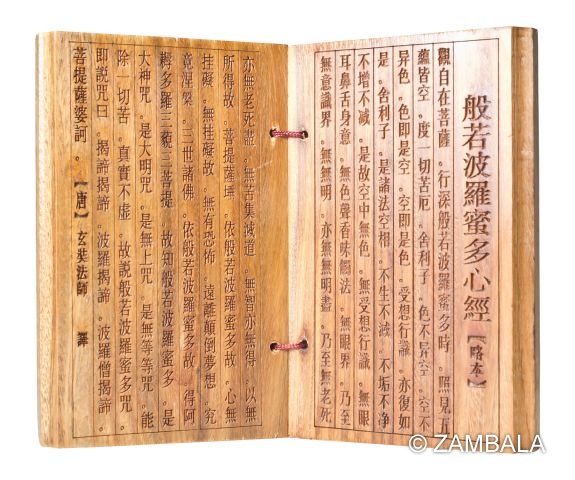 般若波羅蜜多心經【略本】
觀自在菩薩。行深般若波羅蜜多時。照見五
蘊皆空。度一切苦厄。舍利子。色不异空。空不
异色。色即是空。空即是色。受想行識。亦復如
是。舍利子。是諸法空相。不生不滅。不垢不净
不增不減。是故空中無色。無受想行識。無眼
耳鼻舌身意。無色聲香味觸法。無眼界。乃至
無意識界。無無明。亦無無明盡。乃至無老死
亦無老死盡。無苦集滅道。無智亦無得。以無
所得故。菩提薩埵。依般若波羅蜜多故。心無
挂礙。無挂礙故。無有恐怖。遠離顛倒夢想。究
竟涅槃。三世諸佛。依般若波羅蜜多故。得阿
耨多羅三藐三菩提。故知般若波羅蜜多。是
大神咒。是大明咒。是無上咒。是無等等咒。能
除一切苦。真實不虛。故說般若波羅蜜多咒。
即說咒曰。揭諦揭諦。波羅揭諦。波羅僧揭諦。
菩提薩婆訶。【唐】玄奘法師 譯
© ZAMBALA